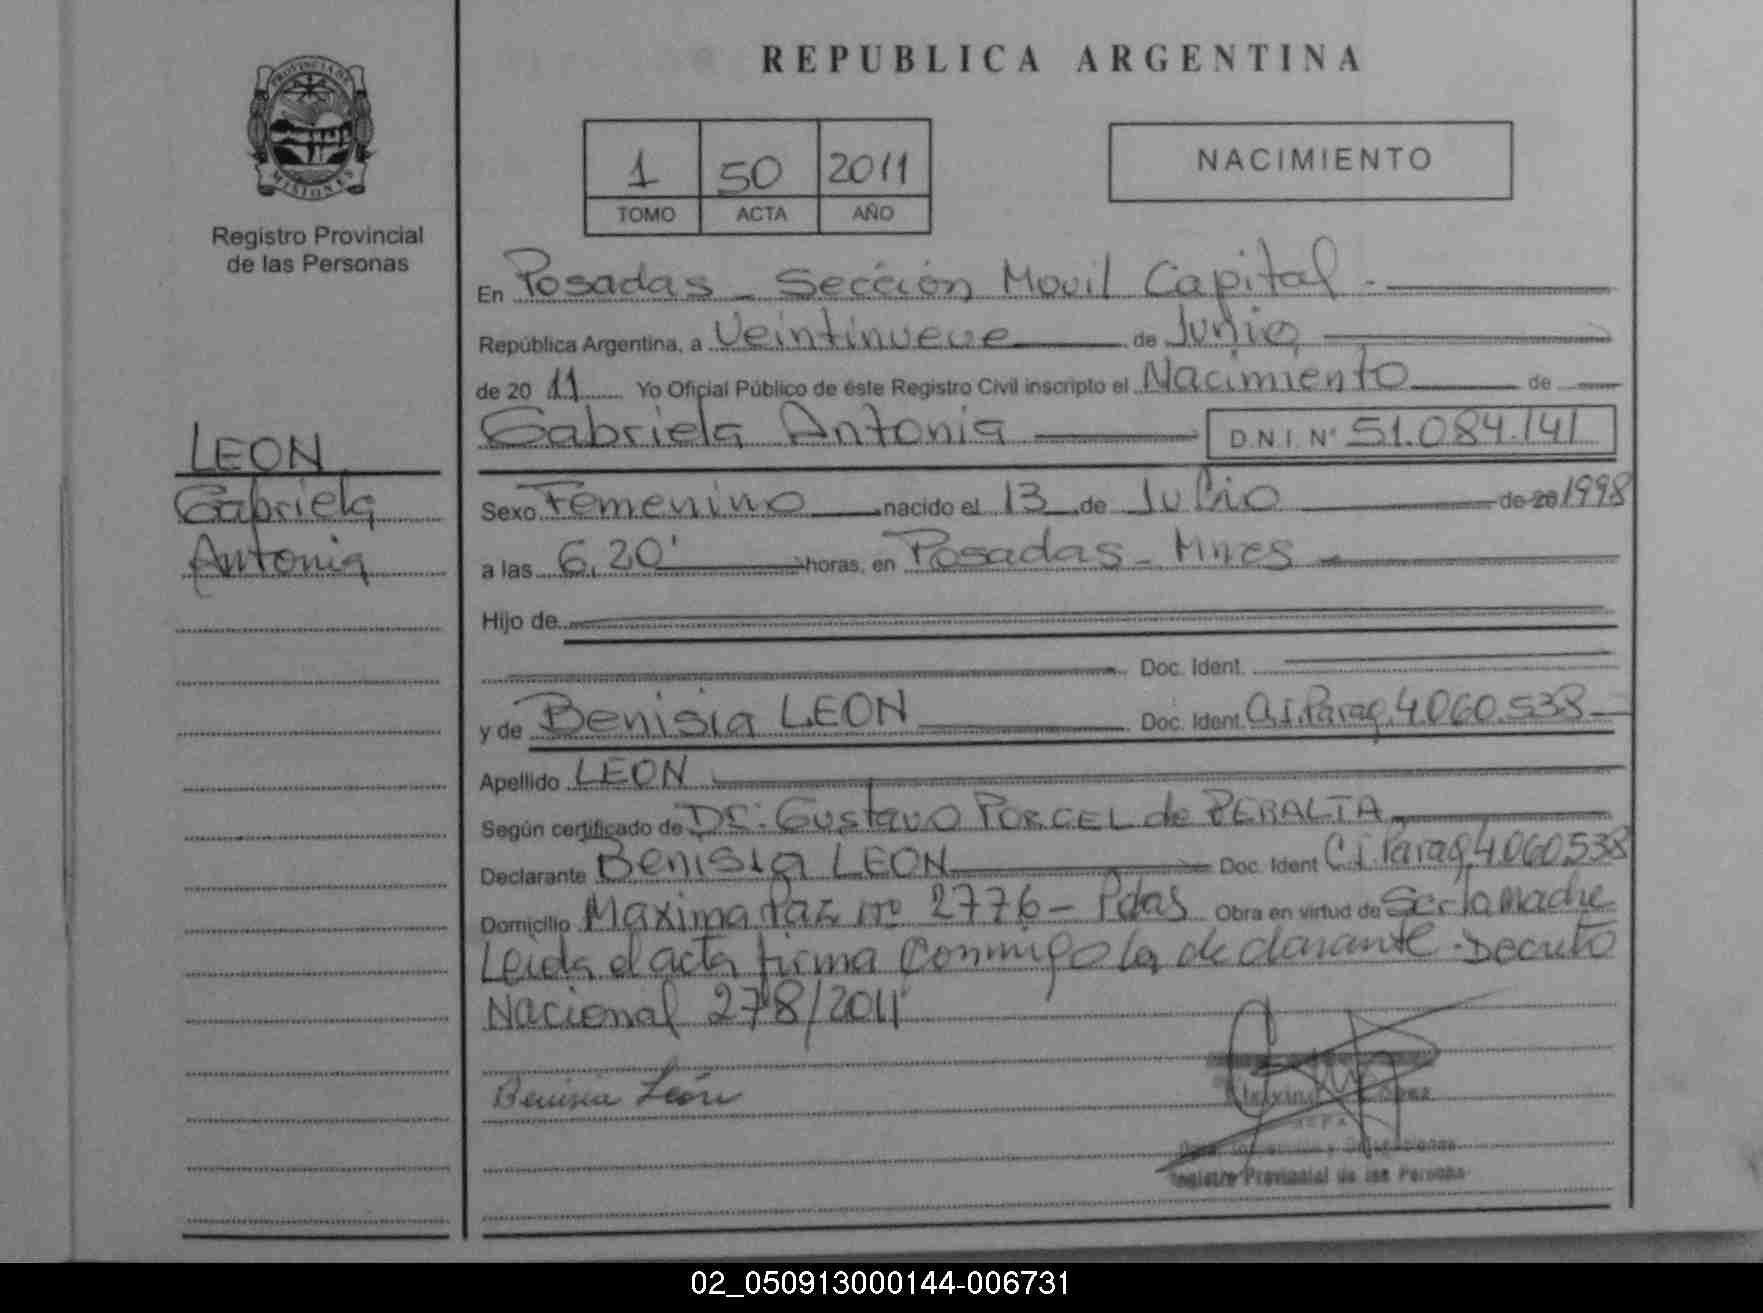 REPUBLICA ARGENTINA
PROVINCIA DE
MISIONES
Registro Provincial
de las Personas
1 50 2011
TOMO ACTA AÑO
NACIMIENTO
En Posadas - Sección Movil Capital.-
República Argentina, a Veintinueve de Junio
de 20 11 Yo Oficial Público de éste Registro Civil inscripto el Nacimiento de
Gabriela Antonia D.N.I. N° 51.084.141
LEON
Gabriela
Antonia
Sexo Femenino nacido el 13 de Julio de 20 1998
a las 6,20' horas, en Posadas - Mnes
Hijo de
Doc. Ident.
y de Benisia LEON Doc. Ident. C.I. Parag. 4.060.538
Apellido LEON
Según certificado de Dr: Gustavo PORCEL de PERALTA
Declarante Benisia LEON Doc. Ident C.I. Parag. 4.060.538
Domicilio Maxima Paz nº 2776 - Pdas Obra en virtud de Ser la madre
Leida el acta firma conmigo la declarante. Decreto
Nacional 278/2011
Benisia León
Registro Provincial de las Personas
02_050913000144-006731